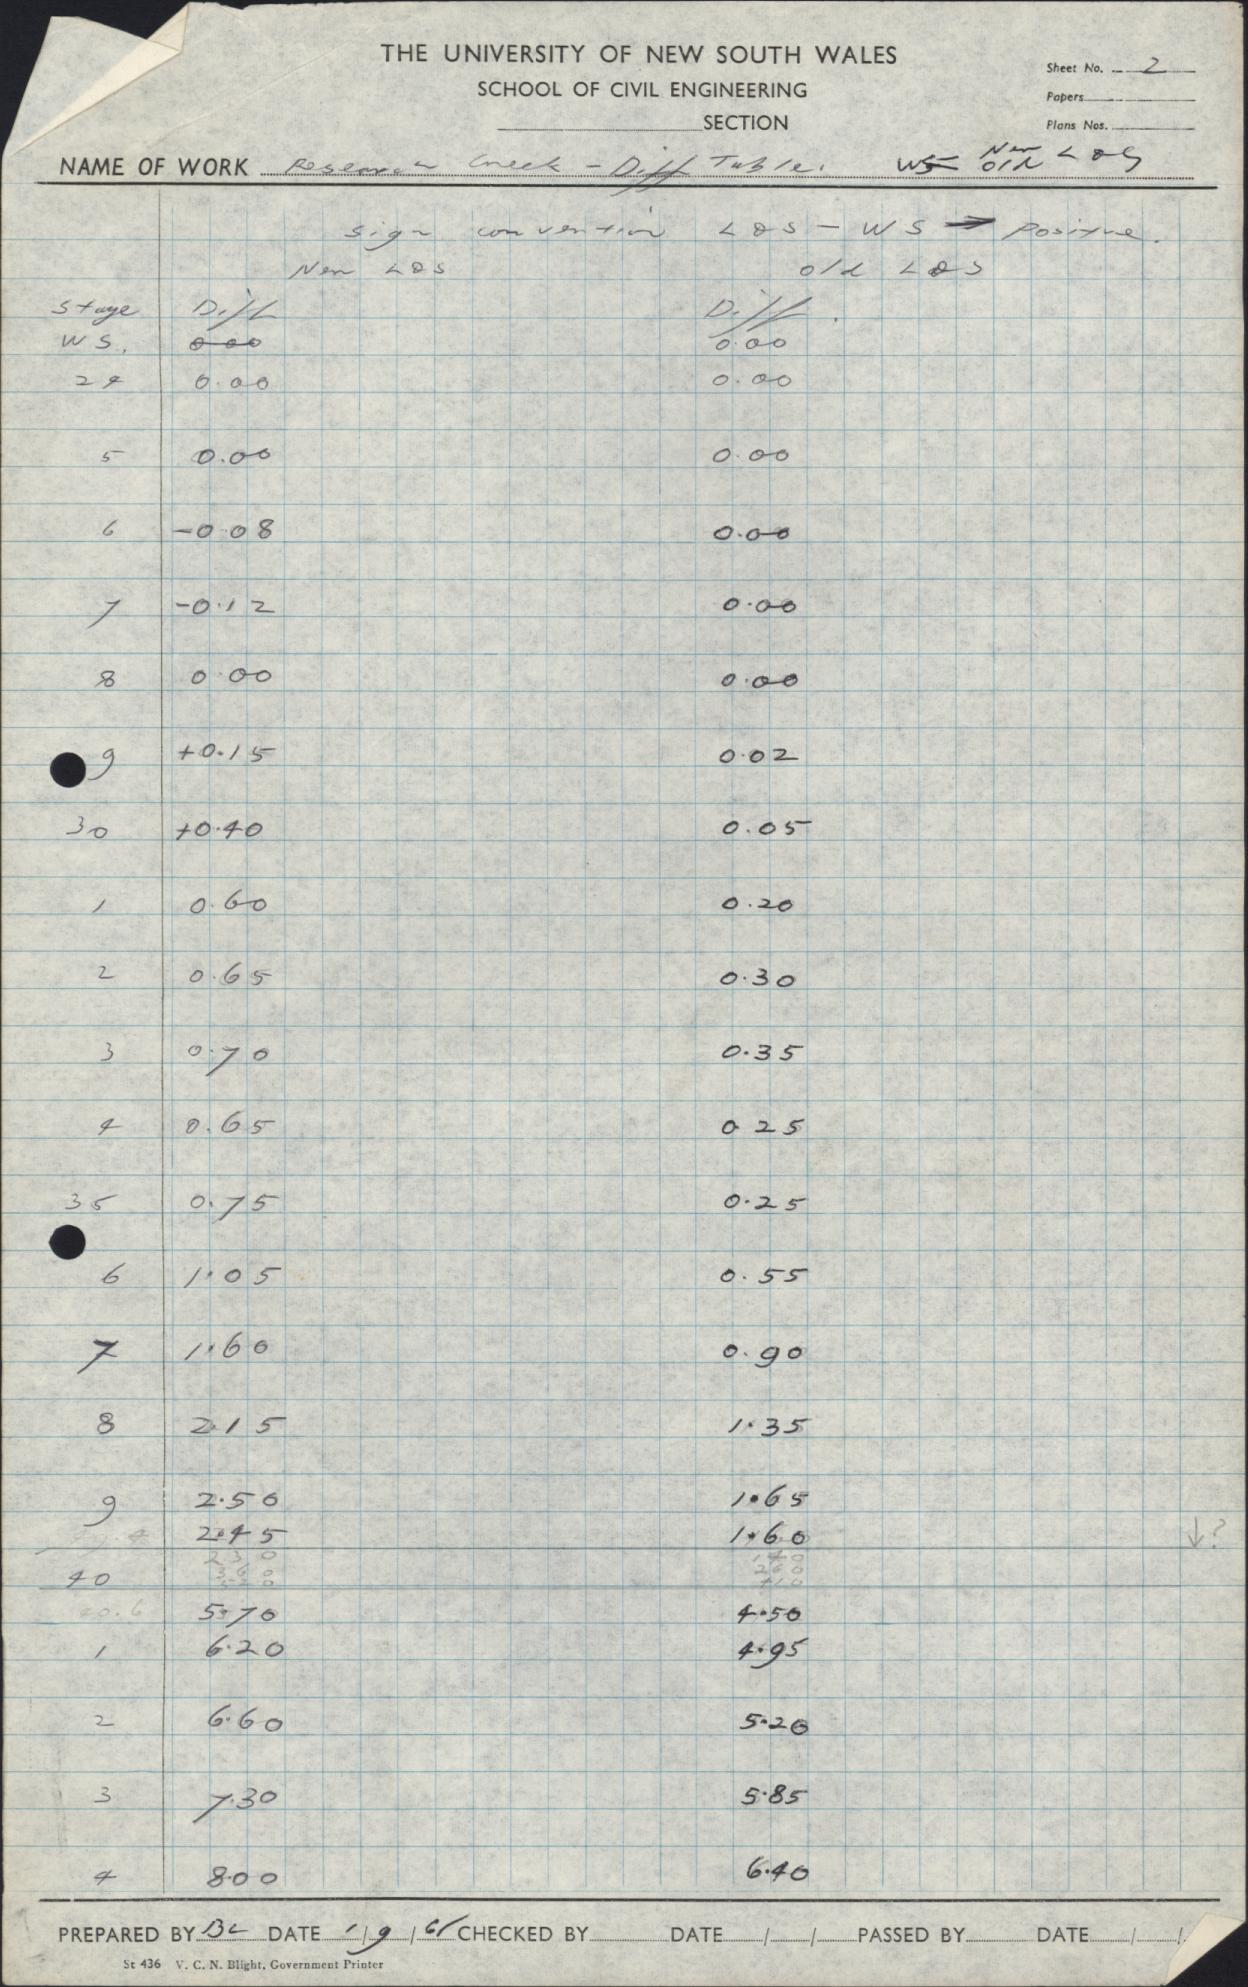 THE UNIVERSITY OF NEW SOUTH WALES
SCHOOL OF CIVIL ENGINEERING
Sheet No. 2
Papers
SECTION
Plans Nos.
NAME OF WORK Research Creek - Diff Table. WS New old LOS
Sign convention LOS - WS → positive.
New LOS old LOS
Stage Diff Diff.
WS. 0.00 0.00
24 0.00 0.00
5 0.00 0.00
6 -0.08 0.00
7 -0.12 0.00
8 0.00 0.00
9 +0.15 0.02
30 +0.40 0.05
1 0.60 0.20
2 0.65 0.30
3 0.70 0.35
4 0.65 0.25
35 0.75 0.25
6 1.05 0.55
7 1.60 0.90
8 2.15 1.35
9 2.50 1.65
.4 2.45 1.60 ↓?
2 3 0 1 4 0
40 3 6 0 2 6 0
5 3 0 4 1 0
40.6 5.70 4.50
1 6.20 4.95
2 6.60 5.20
3 7.30 5.85
4 8.00 6.40
PREPARED BY BL DATE 1/9/61 CHECKED BY DATE / / PASSED BY DATE / /
St 436 V. C. N. Blight, Government Printer